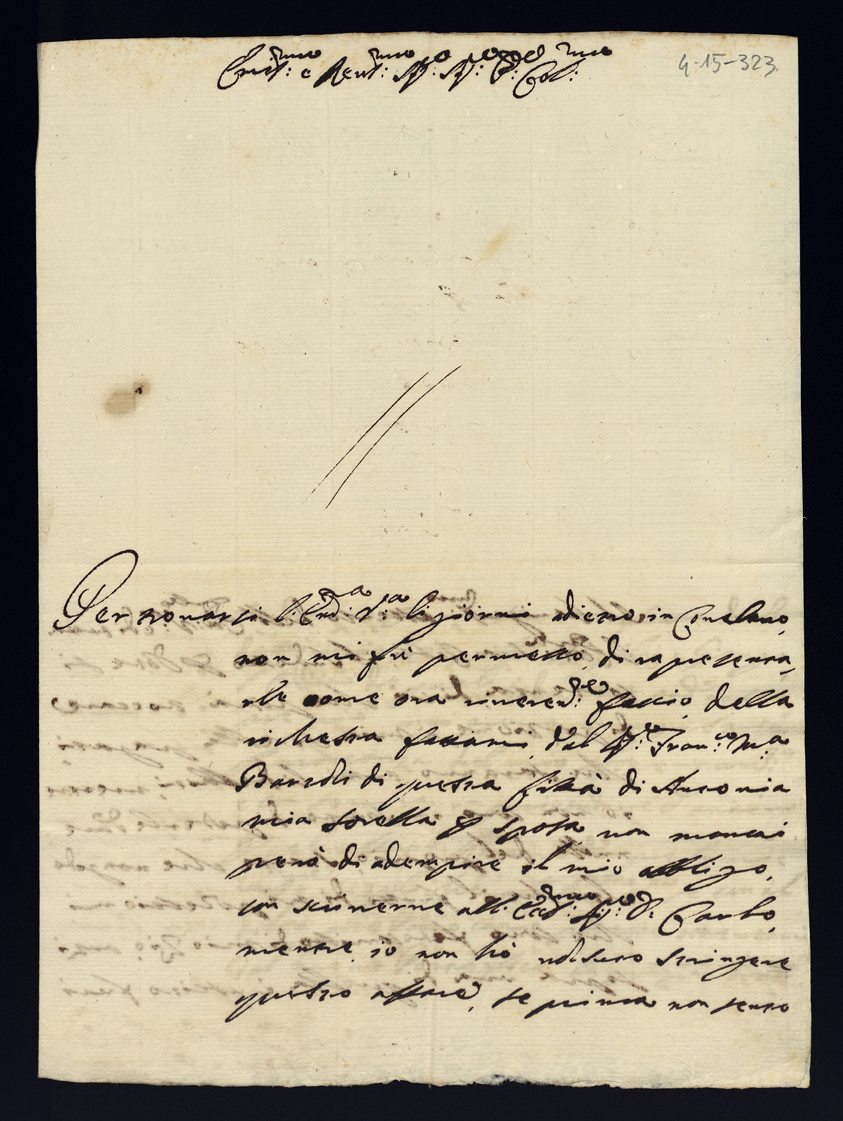 4-15-323
Ecc.mo e Rev.mo Sig.r Sig.r P.ron Col.mo
Per trovarsi l'Ecc.a V.a li giorni adietro in Conelano,
non mi fù permesso, di rapresenta,
rle come ora riverent.e faccio, della
richiesta fattami, dal Sig.r Fran.co M.a
di questa Città di Antonia
mia sorella p sposa, non mancai
però di adempire il mio obbligo,
con scriverne all' Ecc.mo Sig.r D. Carlo,
mentre, io non hò voluto stringere
questo affare, se prima non sento